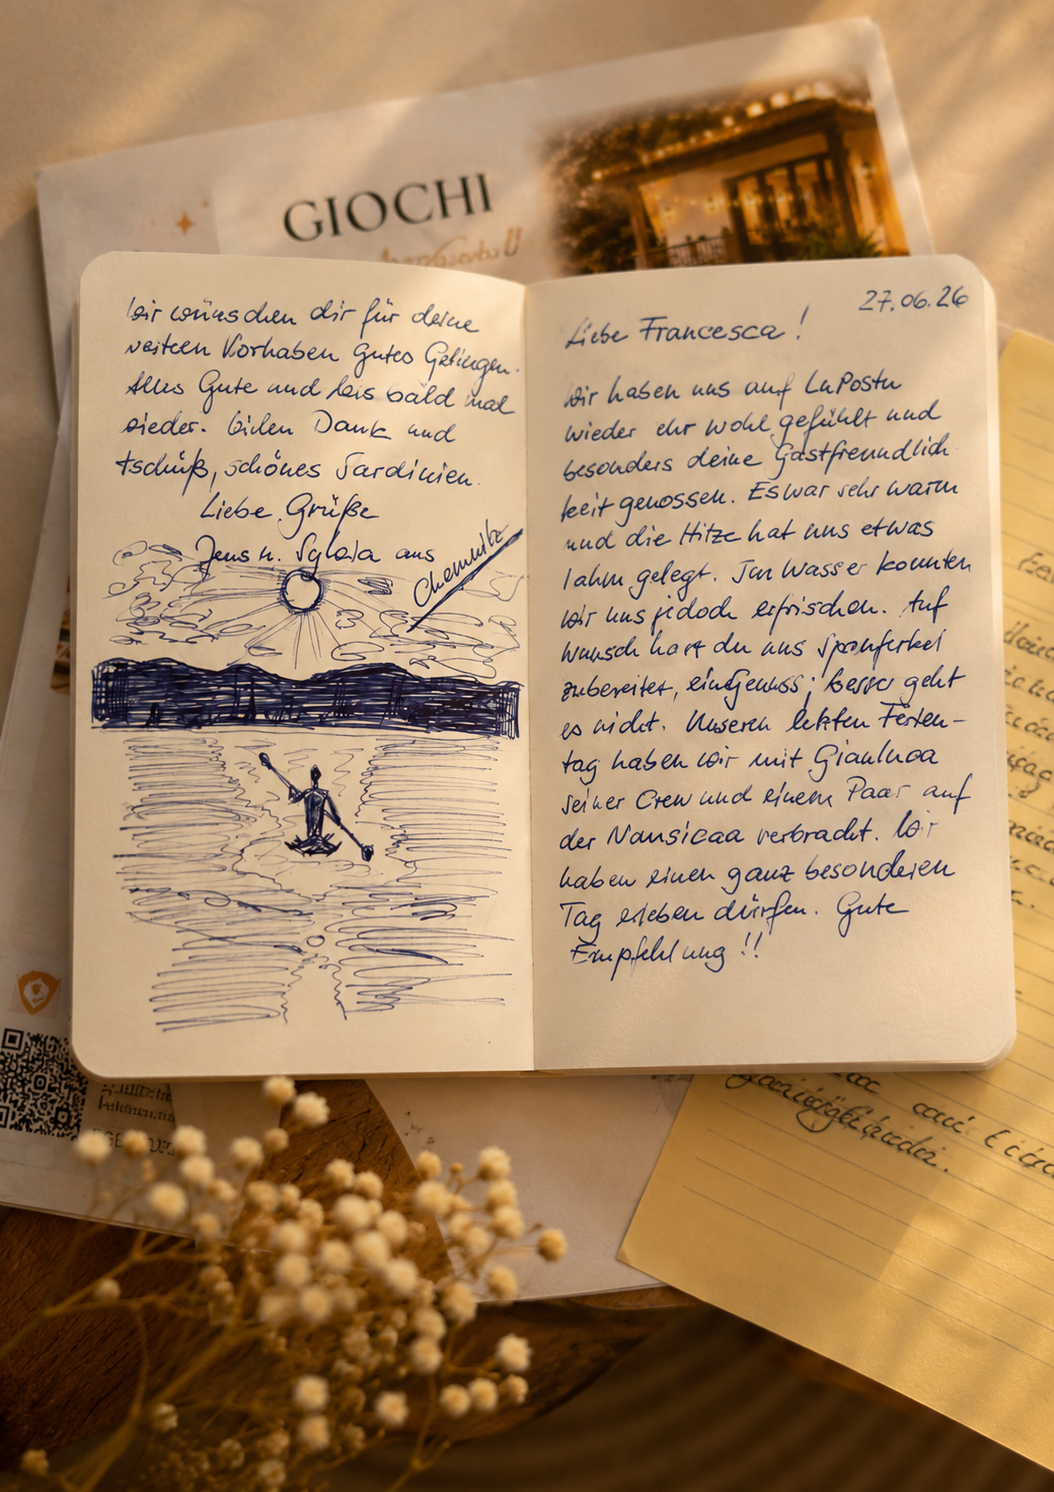 GIOCHI
Wir wünschen dir für deine
weiteren Vorhaben gutes Gelingen.
Alles Gute und bis bald mal
wieder. Vielen Dank und
tschüß, schönes Sardinien.
Liebe Grüße
Jens u. Sylvia aus
Chemnitz
27.06.26
Liebe Francesca!
Wir haben uns auf LaPosta
wieder sehr wohl gefühlt und
besonders deine Gastfreundlich-
keit genossen. Es war sehr warm
und die Hitze hat uns etwas
lahm gelegt. Im Wasser konnten
wir uns jedoch erfrischen. Auf
Wunsch hast du uns Spanferkel
zubereitet, ein Genuss; besser geht
es nicht. Unseren letzten Ferien-
tag haben wir mit Gianluca
seiner Crew und einem Paar auf
der Nausicaa verbracht. Wir
haben einen ganz besonderen
Tag erleben dürfen. Gute
Empfehlung!!